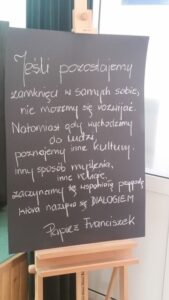 Jeśli pozostajemy
zamknięci w samych sobie,
nie możemy się rozwijać.
Natomiast gdy wychodzimy
do ludzi,
poznajemy inne kultury,
inny sposób myślenia,
inne religie,
zaczynamy tę wspaniałą przygodę
która nazywa się DIALOGIEM
Papież Franciszek